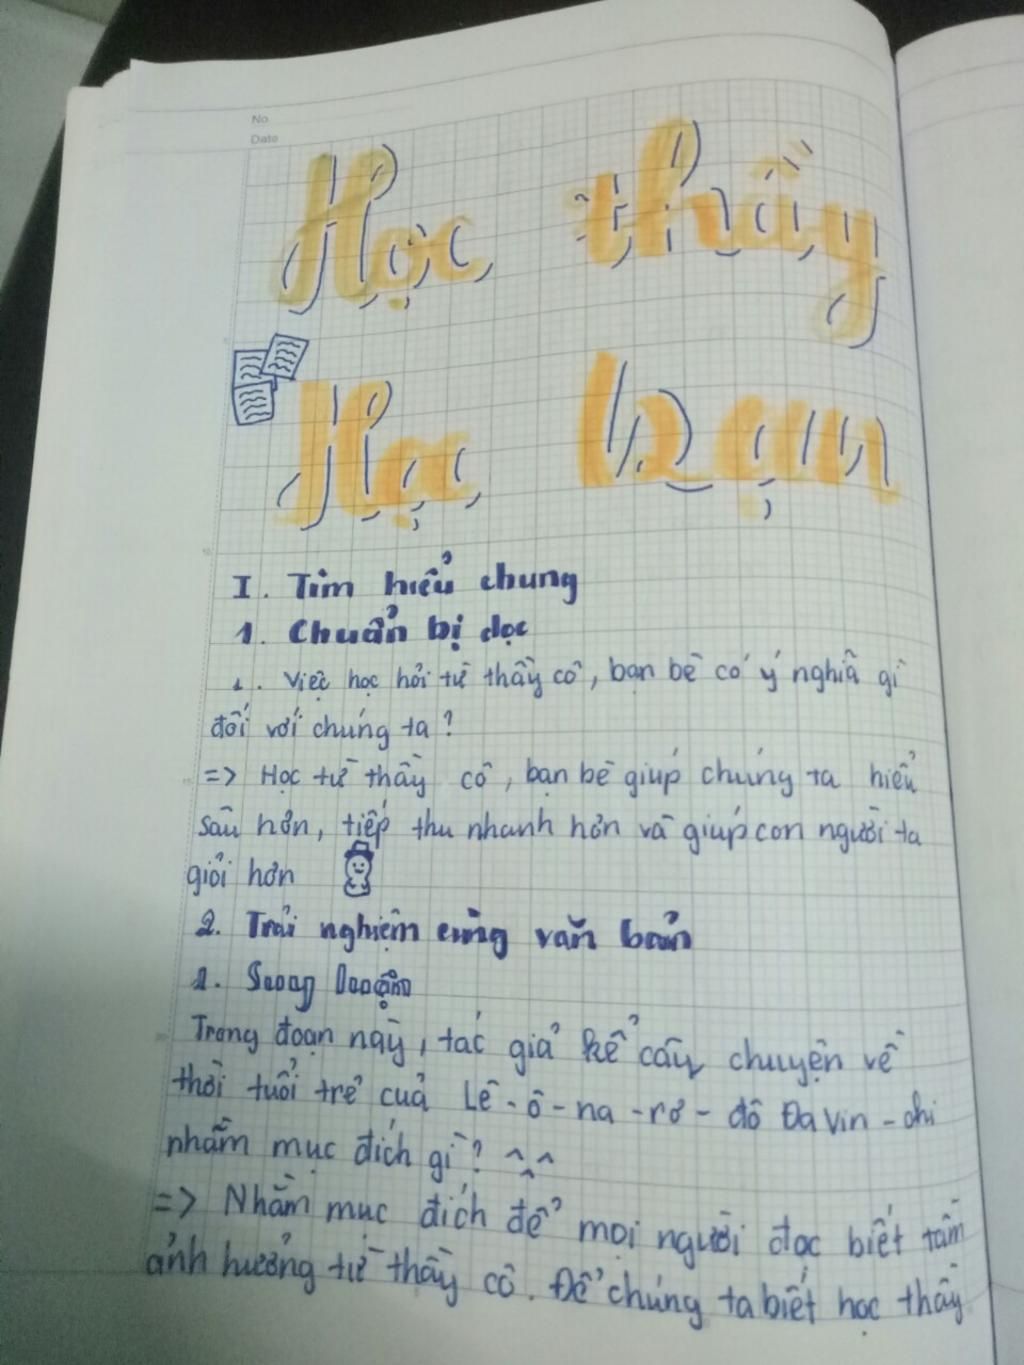 No
Date
Học thầy
Học bạn
I. Tìm hiểu chung
1. Chuẩn bị đọc
1. Việc học hỏi từ thầy cô, bạn bè có ý nghĩa gì
đối với chúng ta?
=> Học từ thầy cô, bạn bè giúp chúng ta hiểu
sâu hơn, tiếp thu nhanh hơn và giúp con người ta
giỏi hơn
2. Trải nghiệm cùng văn bản
1.
Trong đoạn này, tác giả kể câu chuyện về
thời tuổi trẻ của Lê-ô-na-rơ-đô Đa Vin-chi
nhằm mục đích gì? ^.^
=> Nhằm mục đích để mọi người đọc biết tầm
ảnh hưởng từ thầy cô. Để chúng ta biết học thầy